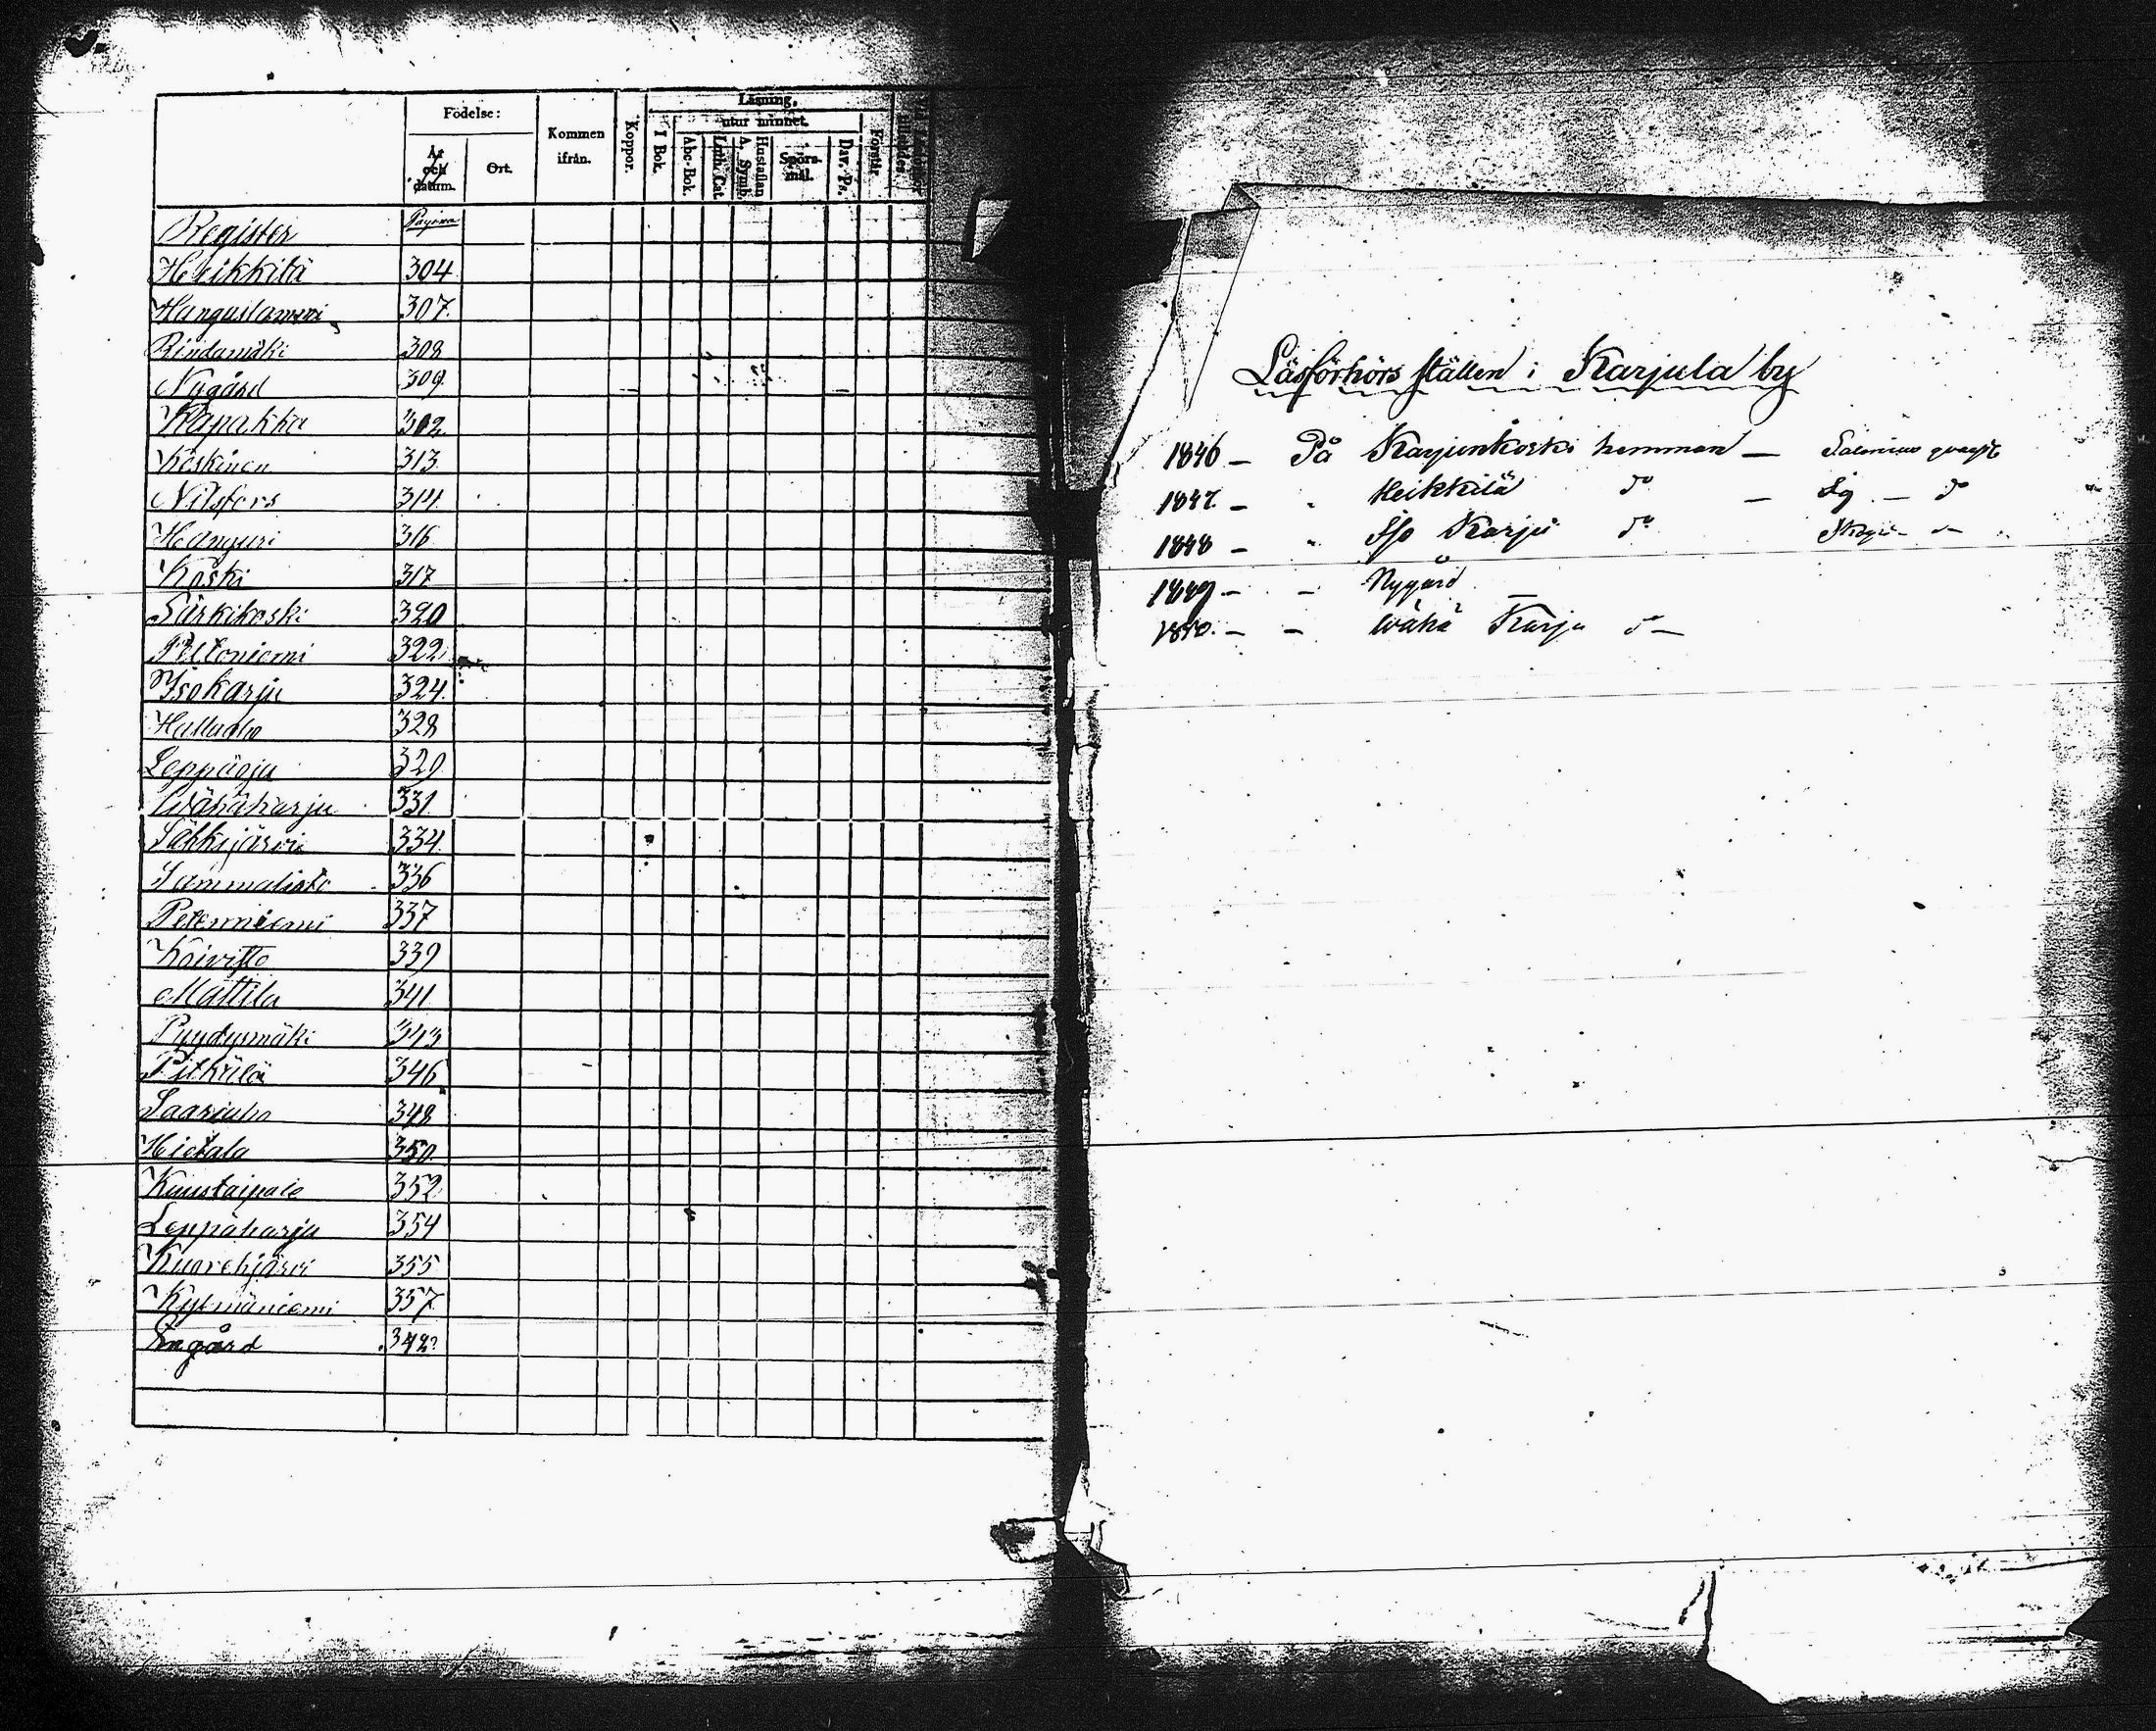 Födelse:
År och datum.
Ort.
Kommen ifrån.
Koppor.
Läsning.
utur minnet.
I Bok.
Abc-Bok.
Luth. Cat.
Hustaflan A. Symb.
Spörs-mål.
Dav. Ps.
Förstår
Register Pagina
Heikkilä 304
Hanguslammi 307
Rindamäki 308
Nygård 309
Kapakka 312
Keskinen 313
Nilsfors 314
Hanguri 316
Koski 317
Särkikoski 320
Peltoniemi 322
Isokarju 324
Halluaho 328
Leppäoja 329
Wähäkarju 331
Säkkijärwi 334
Sammalisto 336
Petenniemi 337
Koivisto 339
Mattila 341
Puydysmäki 343
Pitkälä 346
Saariaho 348
Hietala 350
Kuustaipale 352
Leppäharju 354
Kuorehjärwi 355
Kytmäniemi 357
gård 342
Läsförhörs ställen i Karjula by
1846 – På Karjunkoski hemman –
1847 – Heikkilä do –
1848 – Iso Karju do
1849 – – Nygård
1850. – – Wähä Karju do –